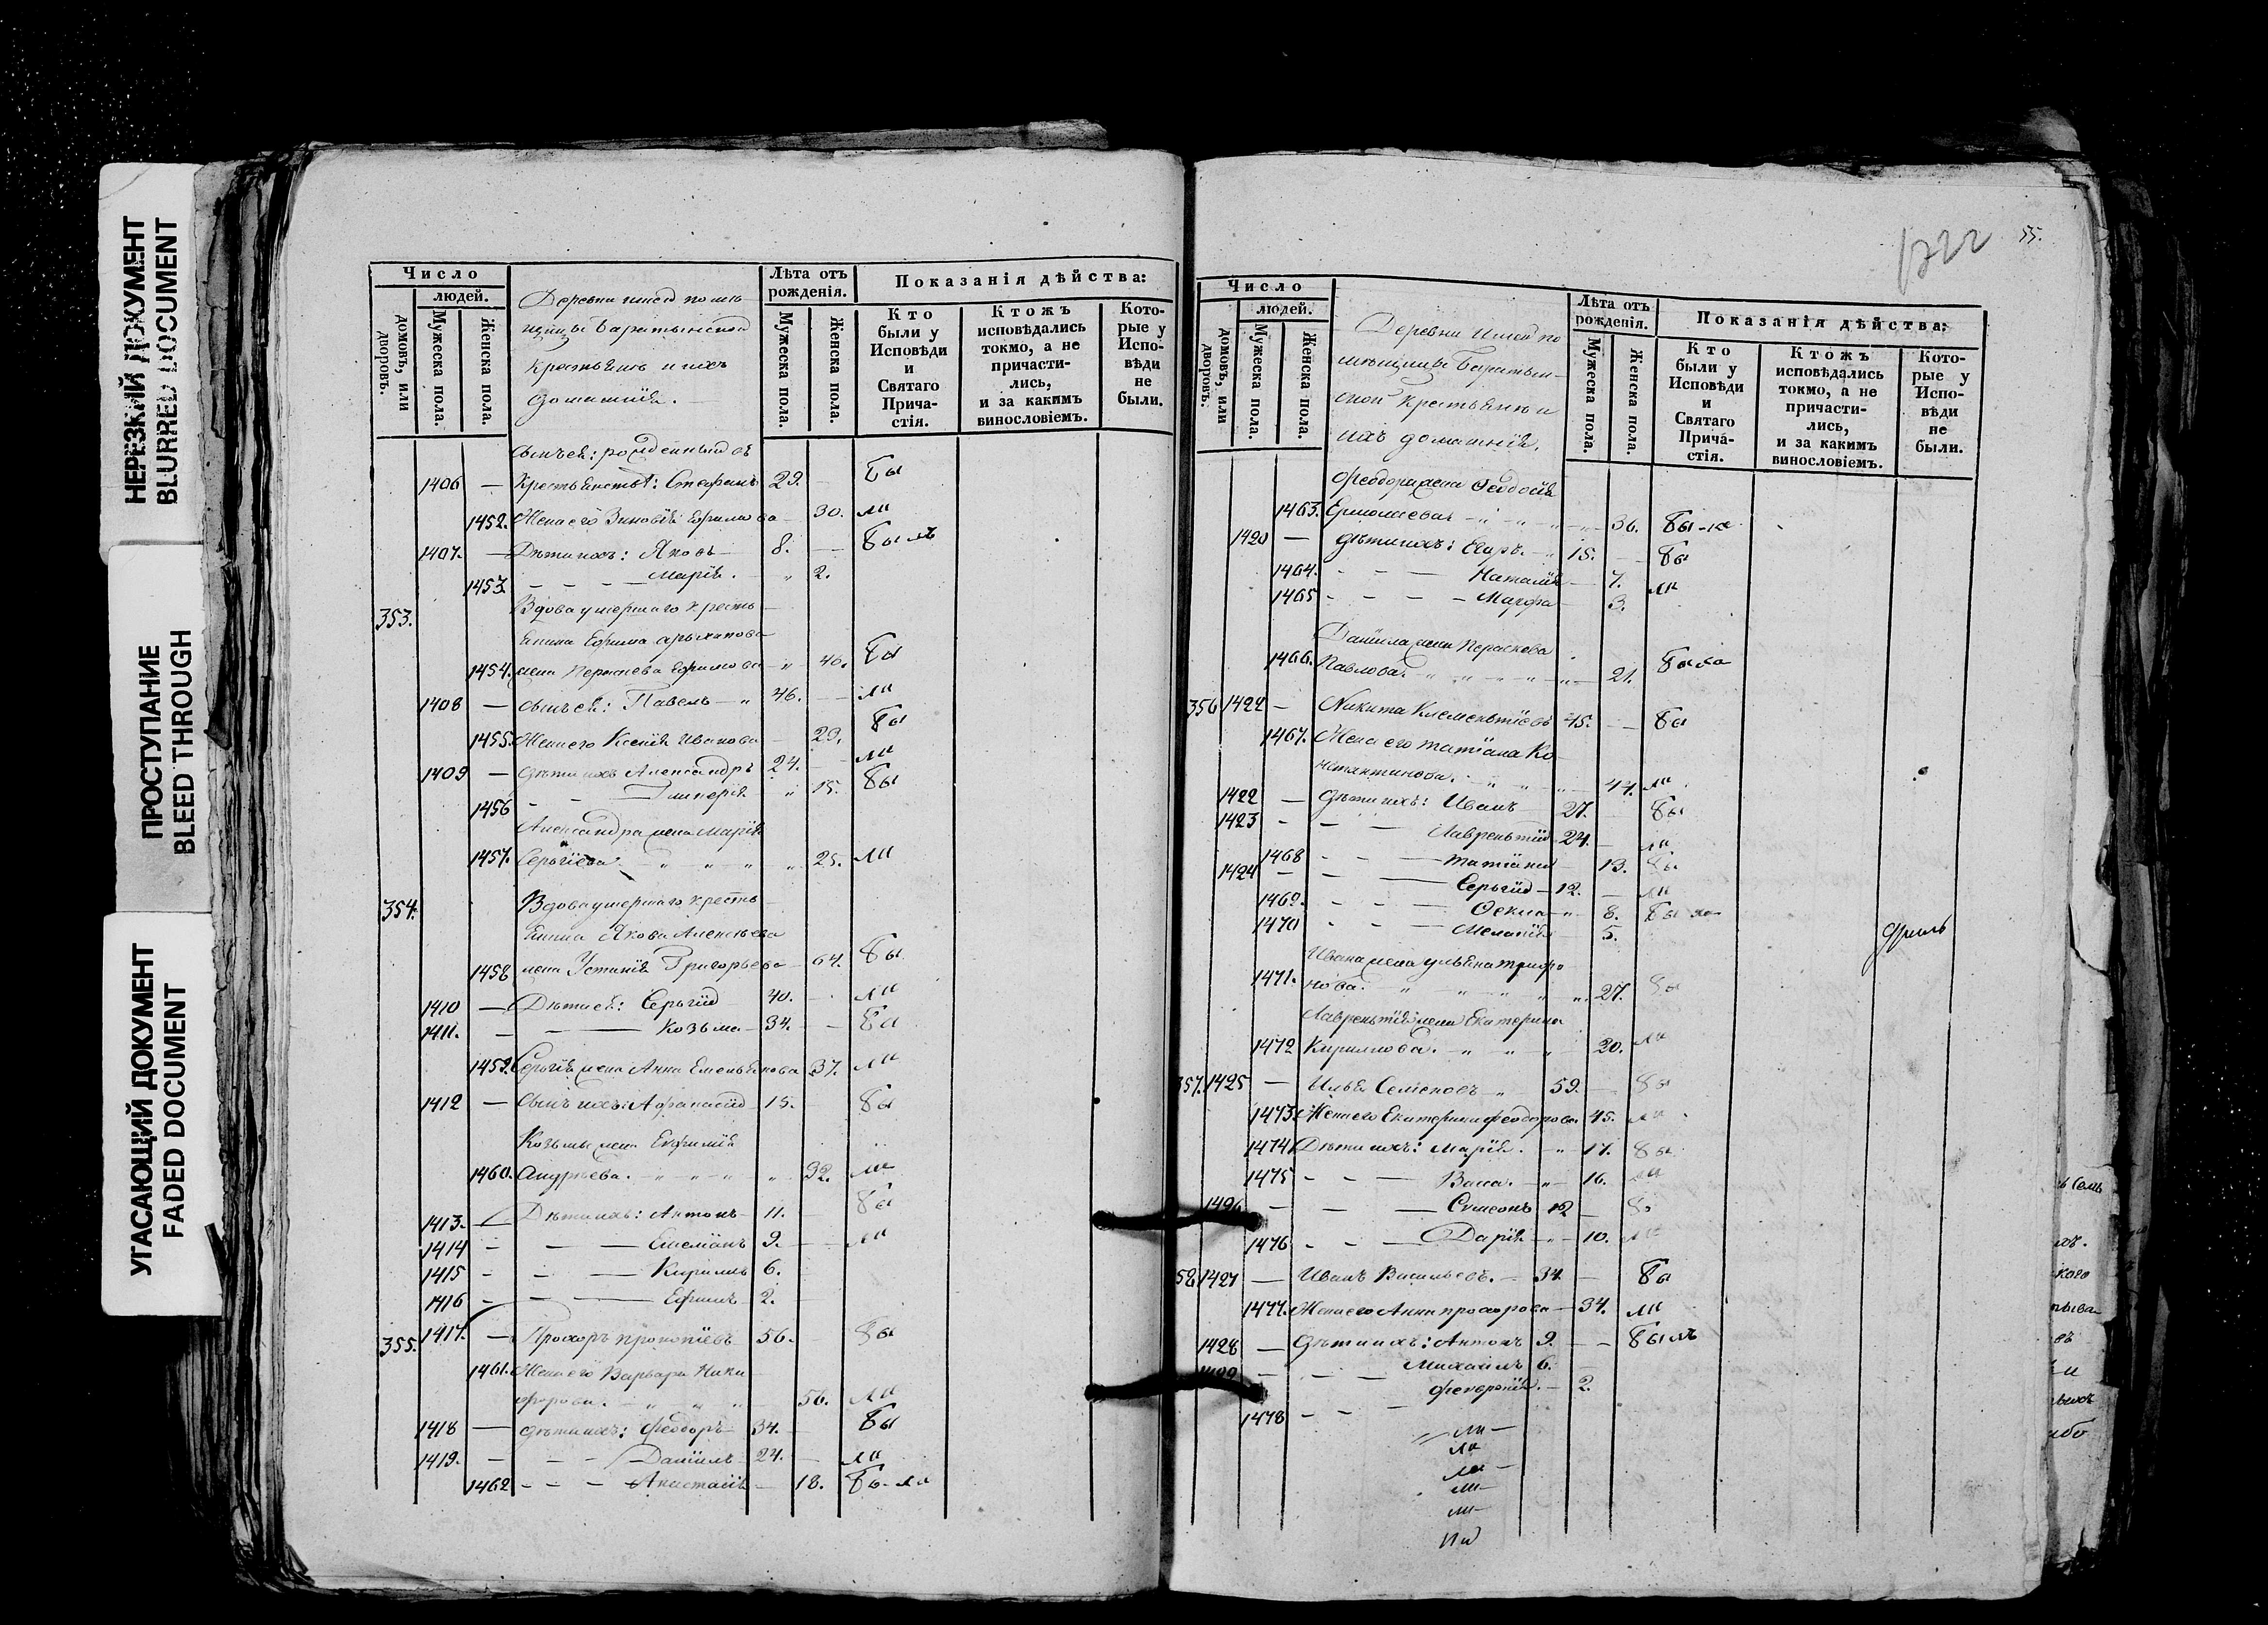 НЕРЕЗКИЙ ДОКУМЕНТ
BLURRED DOCUMENT
ПРОСТУПАНИЕ
BLEED THROUGH
УГАСАЮЩИЙ ДОКУМЕНТ
FADED DOCUMENT
Число
людей.
домовъ, или дворовъ.
Мужеска пола.
Женска пола.
Крестьянъ и ихъ
Лѣта отъ рожденія.
Мужеска пола.
Женска пола.
Показанія дѣйства:
Кто были у Исповѣди и Святаго Причастія.
Ктожъ исповѣдались токмо, а не причастились, и за какимъ винословіемъ.
Которые у Исповѣди не были.
1406 — Стефанъ 29. Бы
1452. Жена его Зиновія Ефимова 30. ли
1407. — Дѣти ихъ: Яковъ 8. былъ
1453. Марія. 2.
353. Вдова умершаго кресть
янина Ефима
1454. жена Ефимова Бы
1408 — сынъ ея: Павелъ 46. ли
1455. Жена его Ксенія Иванова 29. Бы
1409 — дѣти ихъ Александръ 24. ли
1456 15. Бы
Александра жена Марія
1457. Сергіева. 25. ли
354. Вдова умершаго кресть
янина Якова Алексѣева
1458 жена Устинія Григорьева 64. Бы
1410 — Дѣти ея: Сергій 40. ли
1411. Козьма 34. Бы
1459. Сергія жена Анна Емельянова 37. ли
1412 — сынъ ихъ: Афанасій 15. Бы
Козьмы жена Евфимія
1460. Андреева. 32. ли
1413. Дѣти ихъ: Антонъ 11. Бы
1414 Емеліянъ 9. ли
1415 Кирилъ 6.
1416 Ефимъ 2.
355. 1417. — Прохоръ Прокопіевъ 56. Бы
1461. Жена его Варвара Ники
форова. 56. ли
1418 — дѣти ихъ: Феодоръ 34. Бы
1419. Даніилъ 24. ли
1462 Анастасія 18. Бы-ли
55.
Число
людей.
домовъ, или дворовъ.
Мужеска пола.
Женска пола.
ихъ домашнія.
Лѣта отъ рожденія.
Мужеска пола.
Женска пола.
Показанія дѣйства:
Кто были у Исповѣди и Святаго Причастія.
Ктожъ исповѣдались токмо, а не причастились, и за какимъ винословіемъ.
Которые у Исповѣди не были.
Феодора жена Феодосія
1463. Ермолаева 36. Бы-ла
1420 — дѣти ихъ: Егоръ. 15. Бы
1464. Наталія 7. ли
1465 Марфа 3.
Даніила жена Параскова
1466. Павлова. 21. Была
356 1422 — Никита Клементіевъ 45. Бы
1467. Жена его Татіана Ко
нстантинова. 44. ли
1422 — дѣти ихъ: Иванъ 27. Бы
1423 Лаврентій 24. ли
1468 Татіана 13. Бы
1424 Сергій 12. ли
1469. Фекла 8. Была
1470 Меланія 5.
Ивана жена Ульяна Трифо
1471. нова. 27. Бы
Лаврентія жена Екатерина
1472 Кирилова. 20. ли
357. 1425 — Илья Семеновъ 59. Бы
1473. Жена его Екатерина Феодорова 45. ли
1474. Дѣти ихъ: Марія. 17. Бы
1475 Васа. 16. ли
Симеонъ 12 Бы
1476 Дарія 10. ли
58 1427 — Иванъ Васильевъ. 34. Бы
1477. Жена его Анна Прохорова 34. ли
1428 — дѣти ихъ: Антонъ 9. былъ
Михаилъ 6.
1478 Февронія. 2.